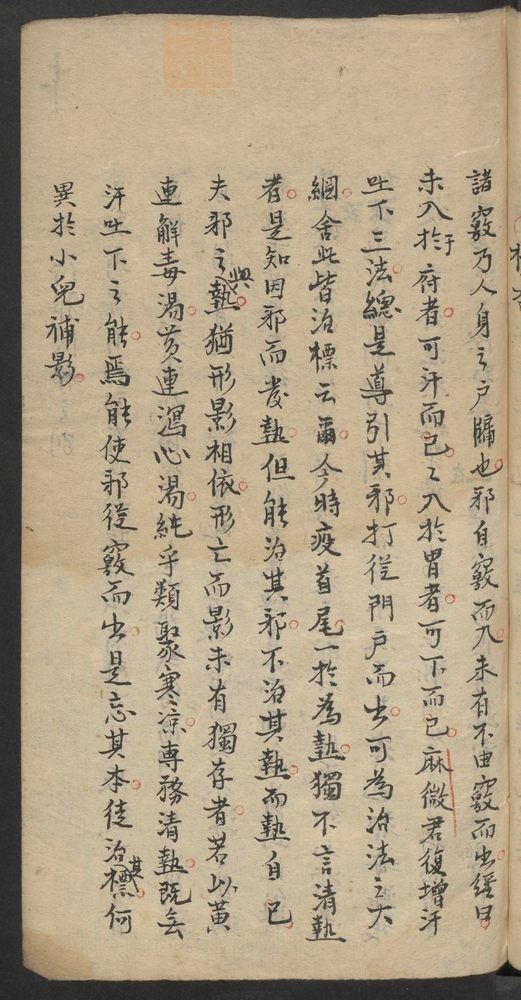 諸竅乃人身之戶牖也邪自竅而入未有不由竅而出經曰
未入於于府者可汗而已已入於胃者可下而已麻徵君復增汗
吐下三法總是導引其邪打從門戶而出可為治法之大
綱舍此皆治標云爾今時疫首尾一於為熱獨不言清熱
者是知因邪而發熱但能治其邪不治其熱而熱自已
夫邪之與熱猶形影相依形亡而影未有獨存者若以黃
連解毒湯黃連瀉心湯純乎類聚寒凉專務清熱既無
汗吐下之能焉能使邪從竅而出是忘其本徒治其標何
異於小兒捕影